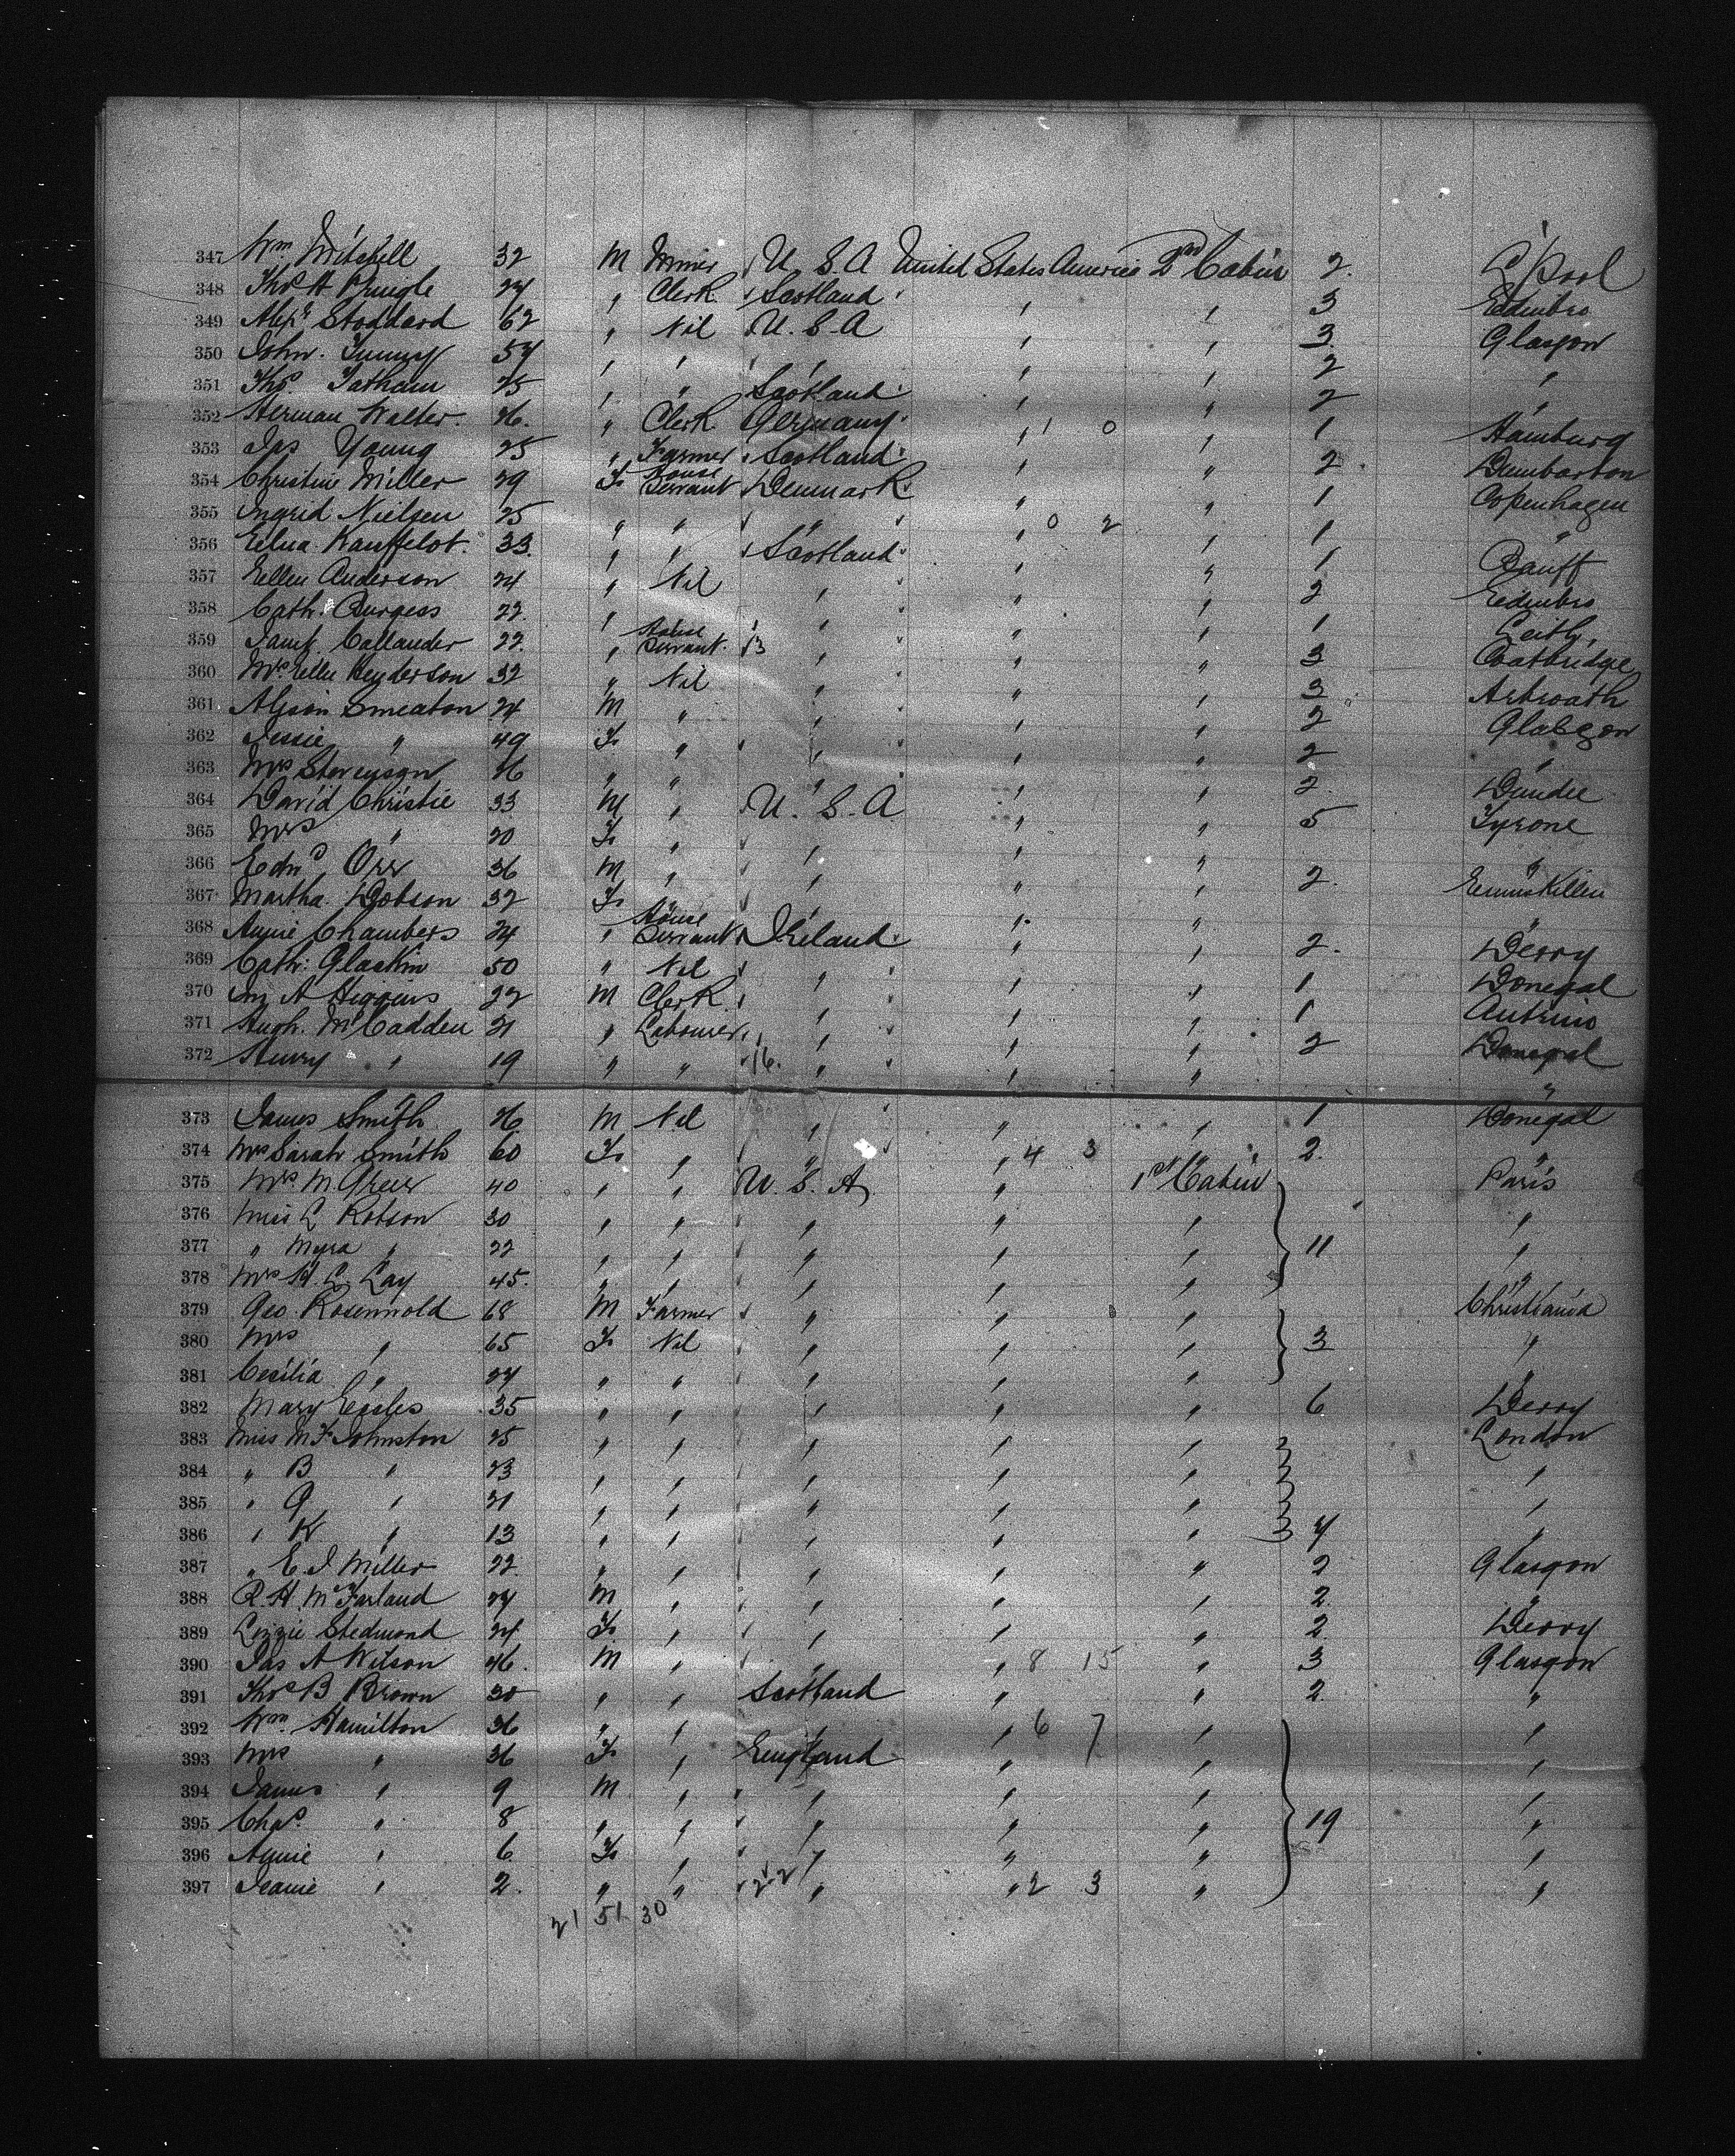 347 Wm Mitchell 32 M Miner U.S.A United States America 2nd Cabin 2. L'Pool
348 Thos H Pringle 24 " Clerk Scotland " " 3 Edinbro
349 Alexr Stoddard 62 " Nil U.S.A " " 3 Glasgow
350 John 54 " " " " " 2 "
351 Thos Tatham 25 " " Scotland " " 2 "
352 Herman Walter. 26. " Clerk Germany " 1 0 " 1 Hamburg
353 Jas Young 25 " Farmer Scotland " " 2 Dumbarton
354 Christine Miller 29 F House Servant Denmark " " 1 Copenhagen
355 Ingrid Nielsen 25 " " " " 0 2 " 1 "
356 33 " " Scotland " " 1 Banff
357 Ellen Anderson 24 " Nil " " " 2 Edinbro
358 Cath. Burgess 22 " " " " 1 Leith
359 Callander 22. " House Servant 13 " " " 3 Coatbridge
360 Mrs Ellen Henderson 32 " Nil " " " 3 Arbroath
361 Alison Smeaton 24 M " " " " 2 Glasgow
362 Jessie " 49 F " " " " 2 "
363 Mrs Stevenson 26 " " " " " 2 Dundee
364 David Christie 33 M " U.S.A " " 5 Tyrone
365 Mrs " 20 F " " " " "
366 Edwd Orr 36 M " " " " 2. Enniskillen
367 Martha Dobson 32 F " " " " "
368 Annie Chambers 24 " House Servant Ireland " " 2. Derry
369 Cath: Glackin 50 " Nil " " " 1 Donegal
370 A Higgins 22 M Clerk " " " 1 Antrim
371 Hugh McCadden 21 " Labourer " " " 2 Donegal
372 " 19 " " 16. " " " "
373 James Smith 26 M Nil " " " 1 Donegal
374 Mrs Sarah Smith 60 F " " " 4 3 " 2.
375 Mrs M Greer 40 " " U.S.A " 1st Cabin Paris
376 Miss L Robson 30 " " " " " "
377 " Myra " 22 " " " " " 11 "
378 Mrs H. L. Lay 45. " " " " " "
379 Geo. Rosenwold 68 M Farmer " " " Christiania
380 Mrs " 65 F Nil " " " 3 "
381 Cecilia " 24 " " " " " "
382 Mary Eccles 35 " " " " " 6 Derry
383 Miss M F Johnston 25 " " " " " London
384 " B " 23 " " " " " "
385 " G " 21 " " " " " "
386 " K " 13 " " " " " 4 "
387 " E. J Miller 22. " " " " " 2 Glasgow
388 R. H. McFarland 24 M " " " " 2. "
389 Lizzie Stedmond 24 F " " " " 2 Derry
390 Jas A Wilson 46. M " " " 8 15 " 3 Glasgow
391 Thos B Brown 30 " " Scotland " " 2. "
392 Wm. Hamilton 36 " " " " 6 7 " "
393 Mrs " 36 F " England " " "
394 James " 9 M " " " " "
395 Chas. " 8 " " " " " 19 "
396 Annie " 6 F " " " " "
397 Jeanie " 2. " " 22 " " 2 3 " "
21 51 30